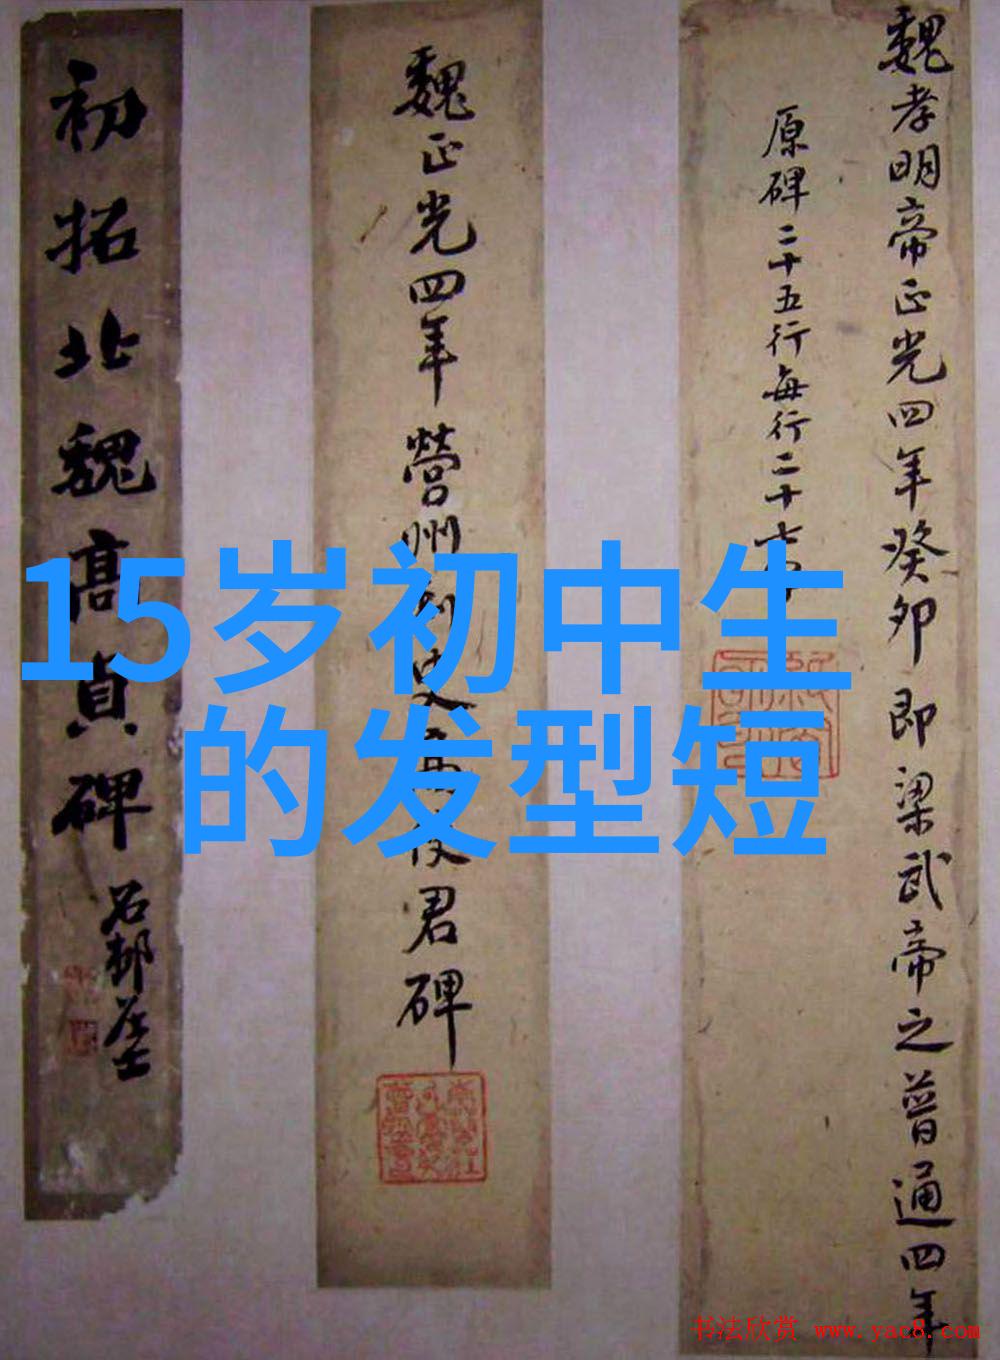 魏孝明帝正光四年癸卯即梁武帝之普通四年
原碑二十五行每行二十
魏正光四年營州刺史
使君碑
初拓北魏高貞碑
15岁初中生
的发型短
书法欣赏 www.yac8.com